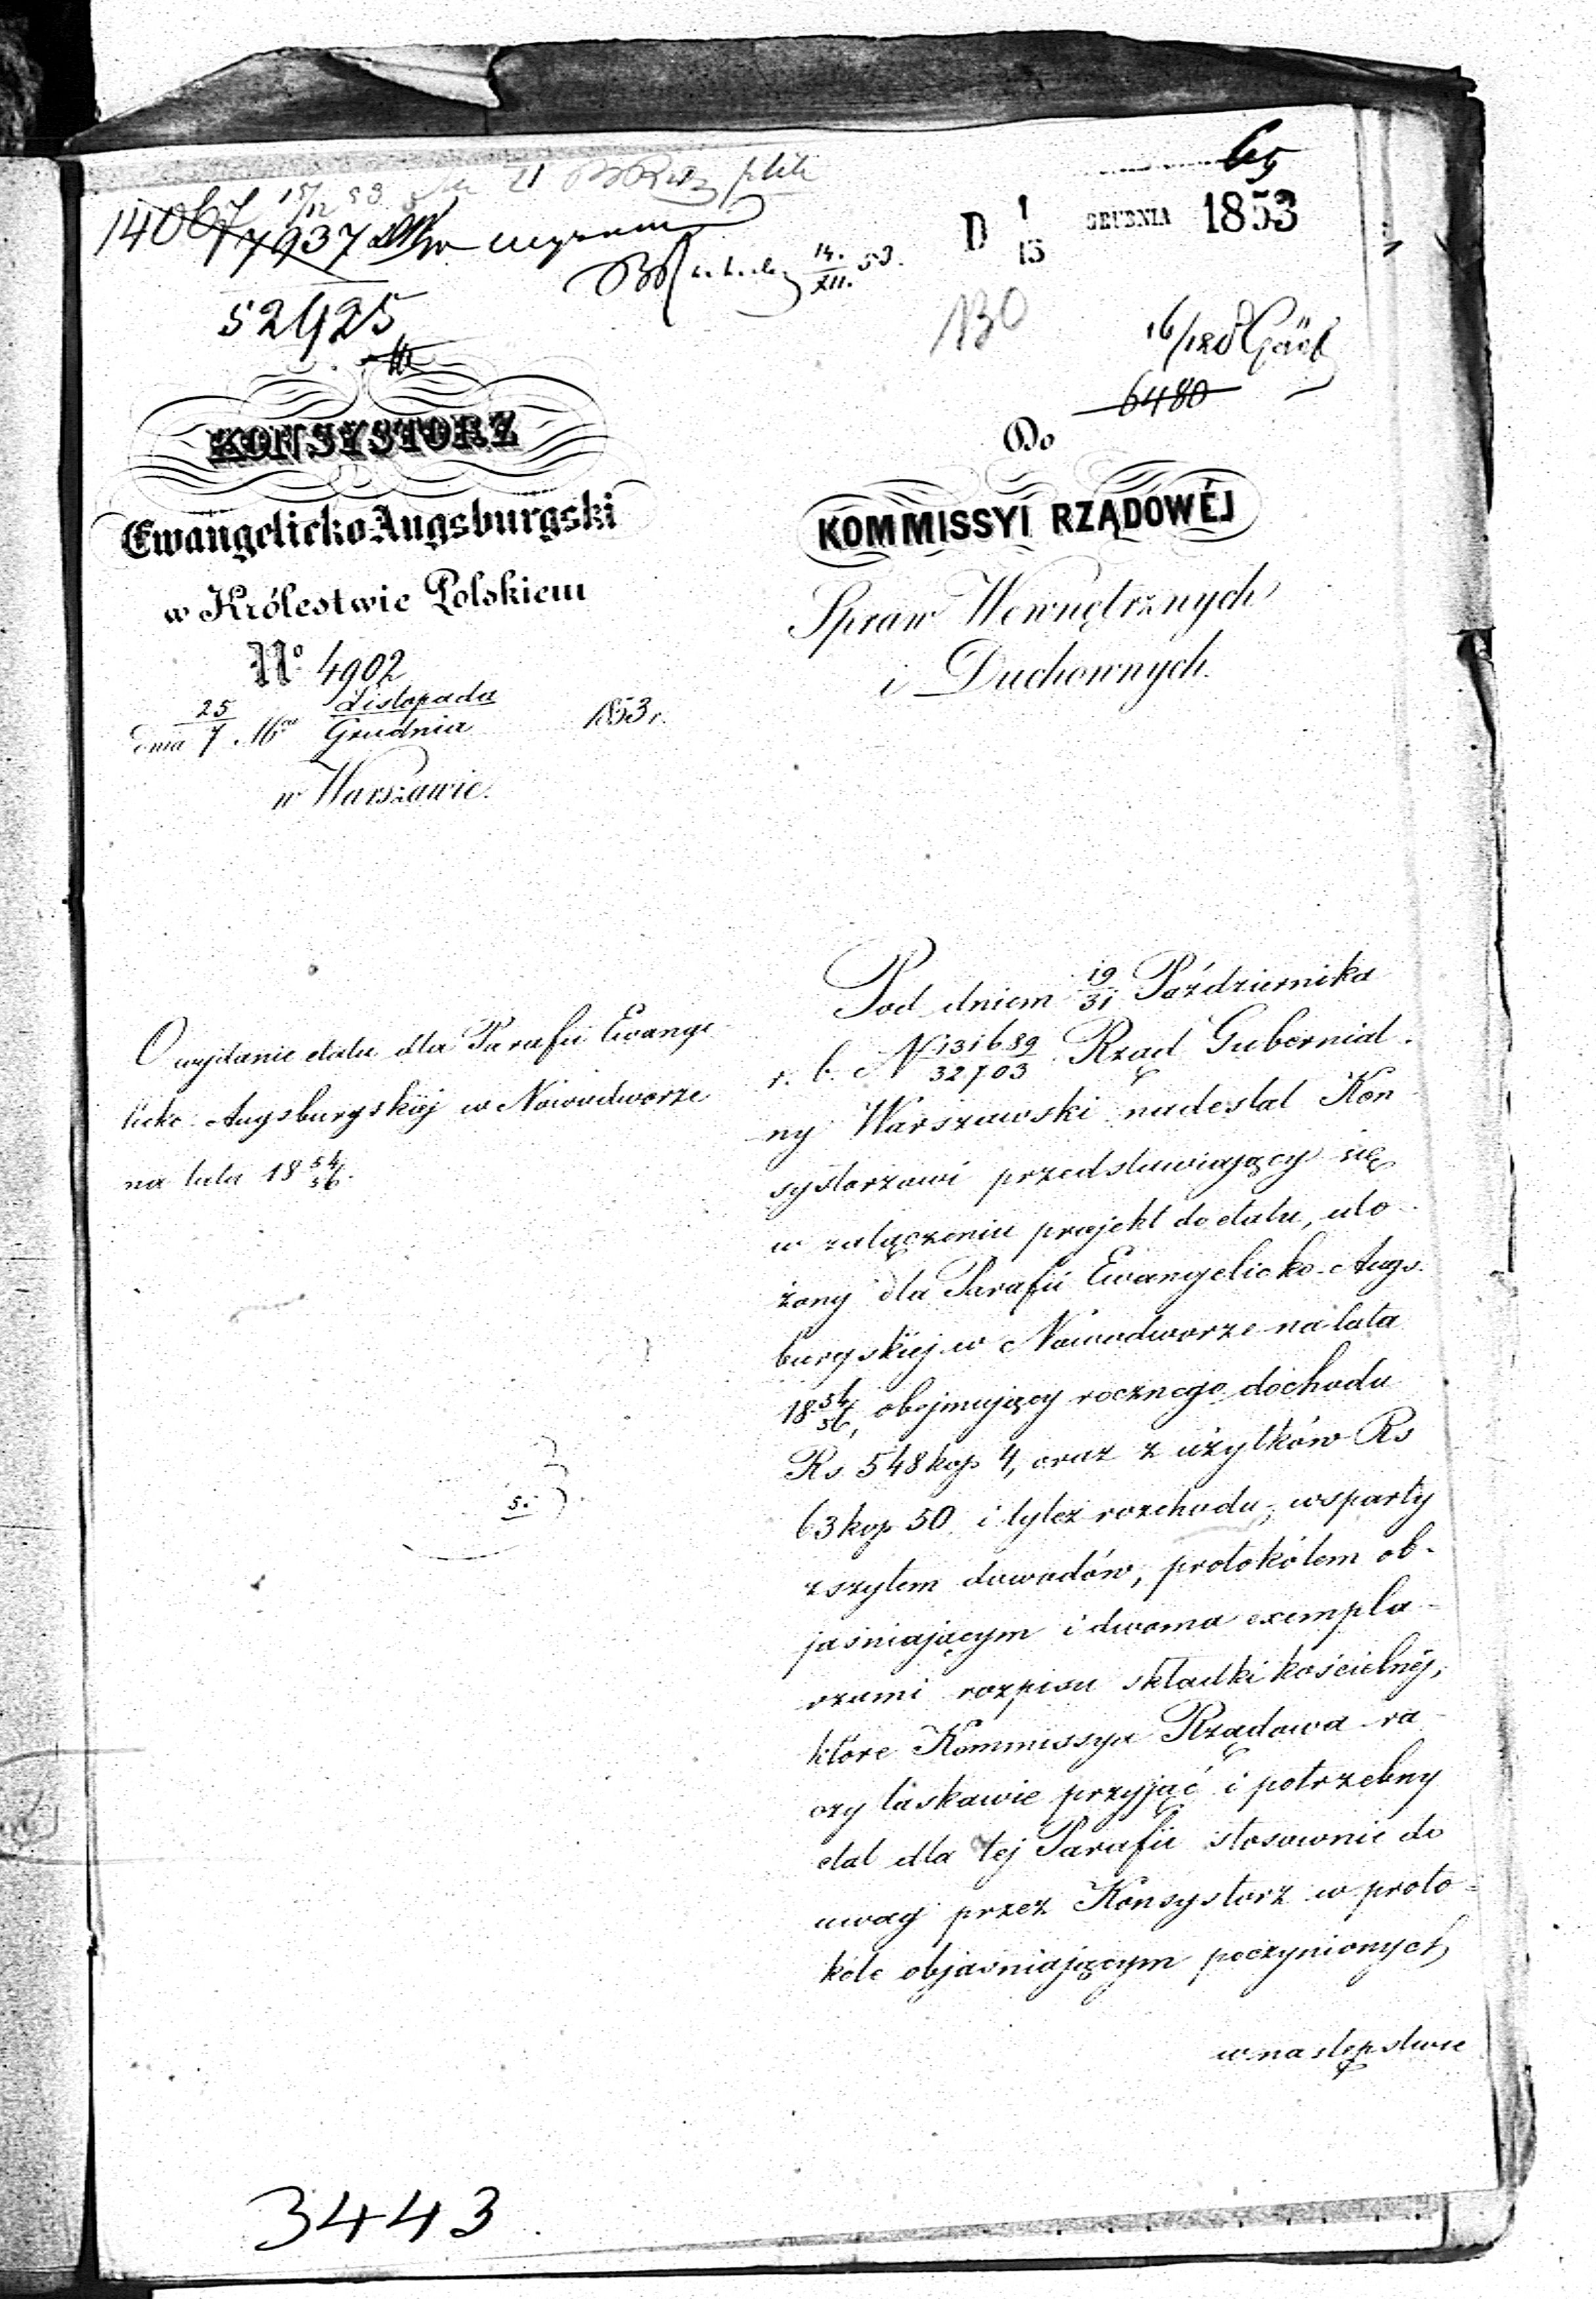 65
15/12 53
14067
7937
14./XII. 53.
D 1/13 GRUDNIA 1853
52425
130
16/12
6480
KONSYSTORZ
Ewangelicko Augsburgski
w Królestwie Polskiem
No 4902
dnia 25/7 Mca Listopada/Grudnia 1853 r.
w Warszawie.
Do
KOMMISSYI RZĄDOWÉJ
Spraw Wewnętrznych
i Duchownych.
O wydanie etatu dla Parafii Ewange-
licko-Augsburgskiéj w Nowodworze
na lata 18 54/56.
Pod dniem 19/31 Października
r. b. N 131689/32703 Rząd Gubernial-
ny Warszawski nadesłał Kon
systorzowi przedstawiający się
w załączeniu projekt do etatu, uło-
żony dla Parafii Ewangelicko-Augs-
burgskiej w Nowodworze na lata
18 54/56, obejmujący rocznego dochodu
Rs 548 kop 4, oraz z użytków Rs
63 kop 50 i tyleż rozchodu, wsparty
zszytem dowodów, protokółem ob-
jaśniającym i dwoma exempla-
rzami rozpisu składki kościelnéj,
które Kommissya Rządowa ra-
czy łaskawie przyjąć i potrzebny
etat dla tej Parafii stosownie do
uwag przez Konsystorz w proto-
kole objaśniającym poczynionych
w następstwie
3443